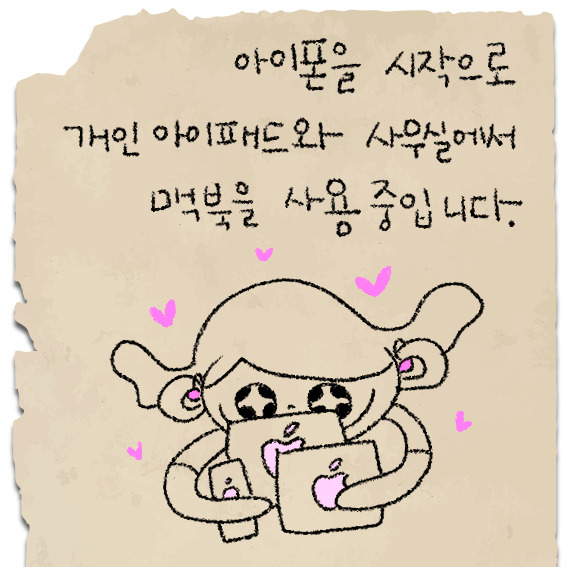 아이폰을 시작으로
개인 아이패드와 사무실에서
맥북을 사용 중입니다.